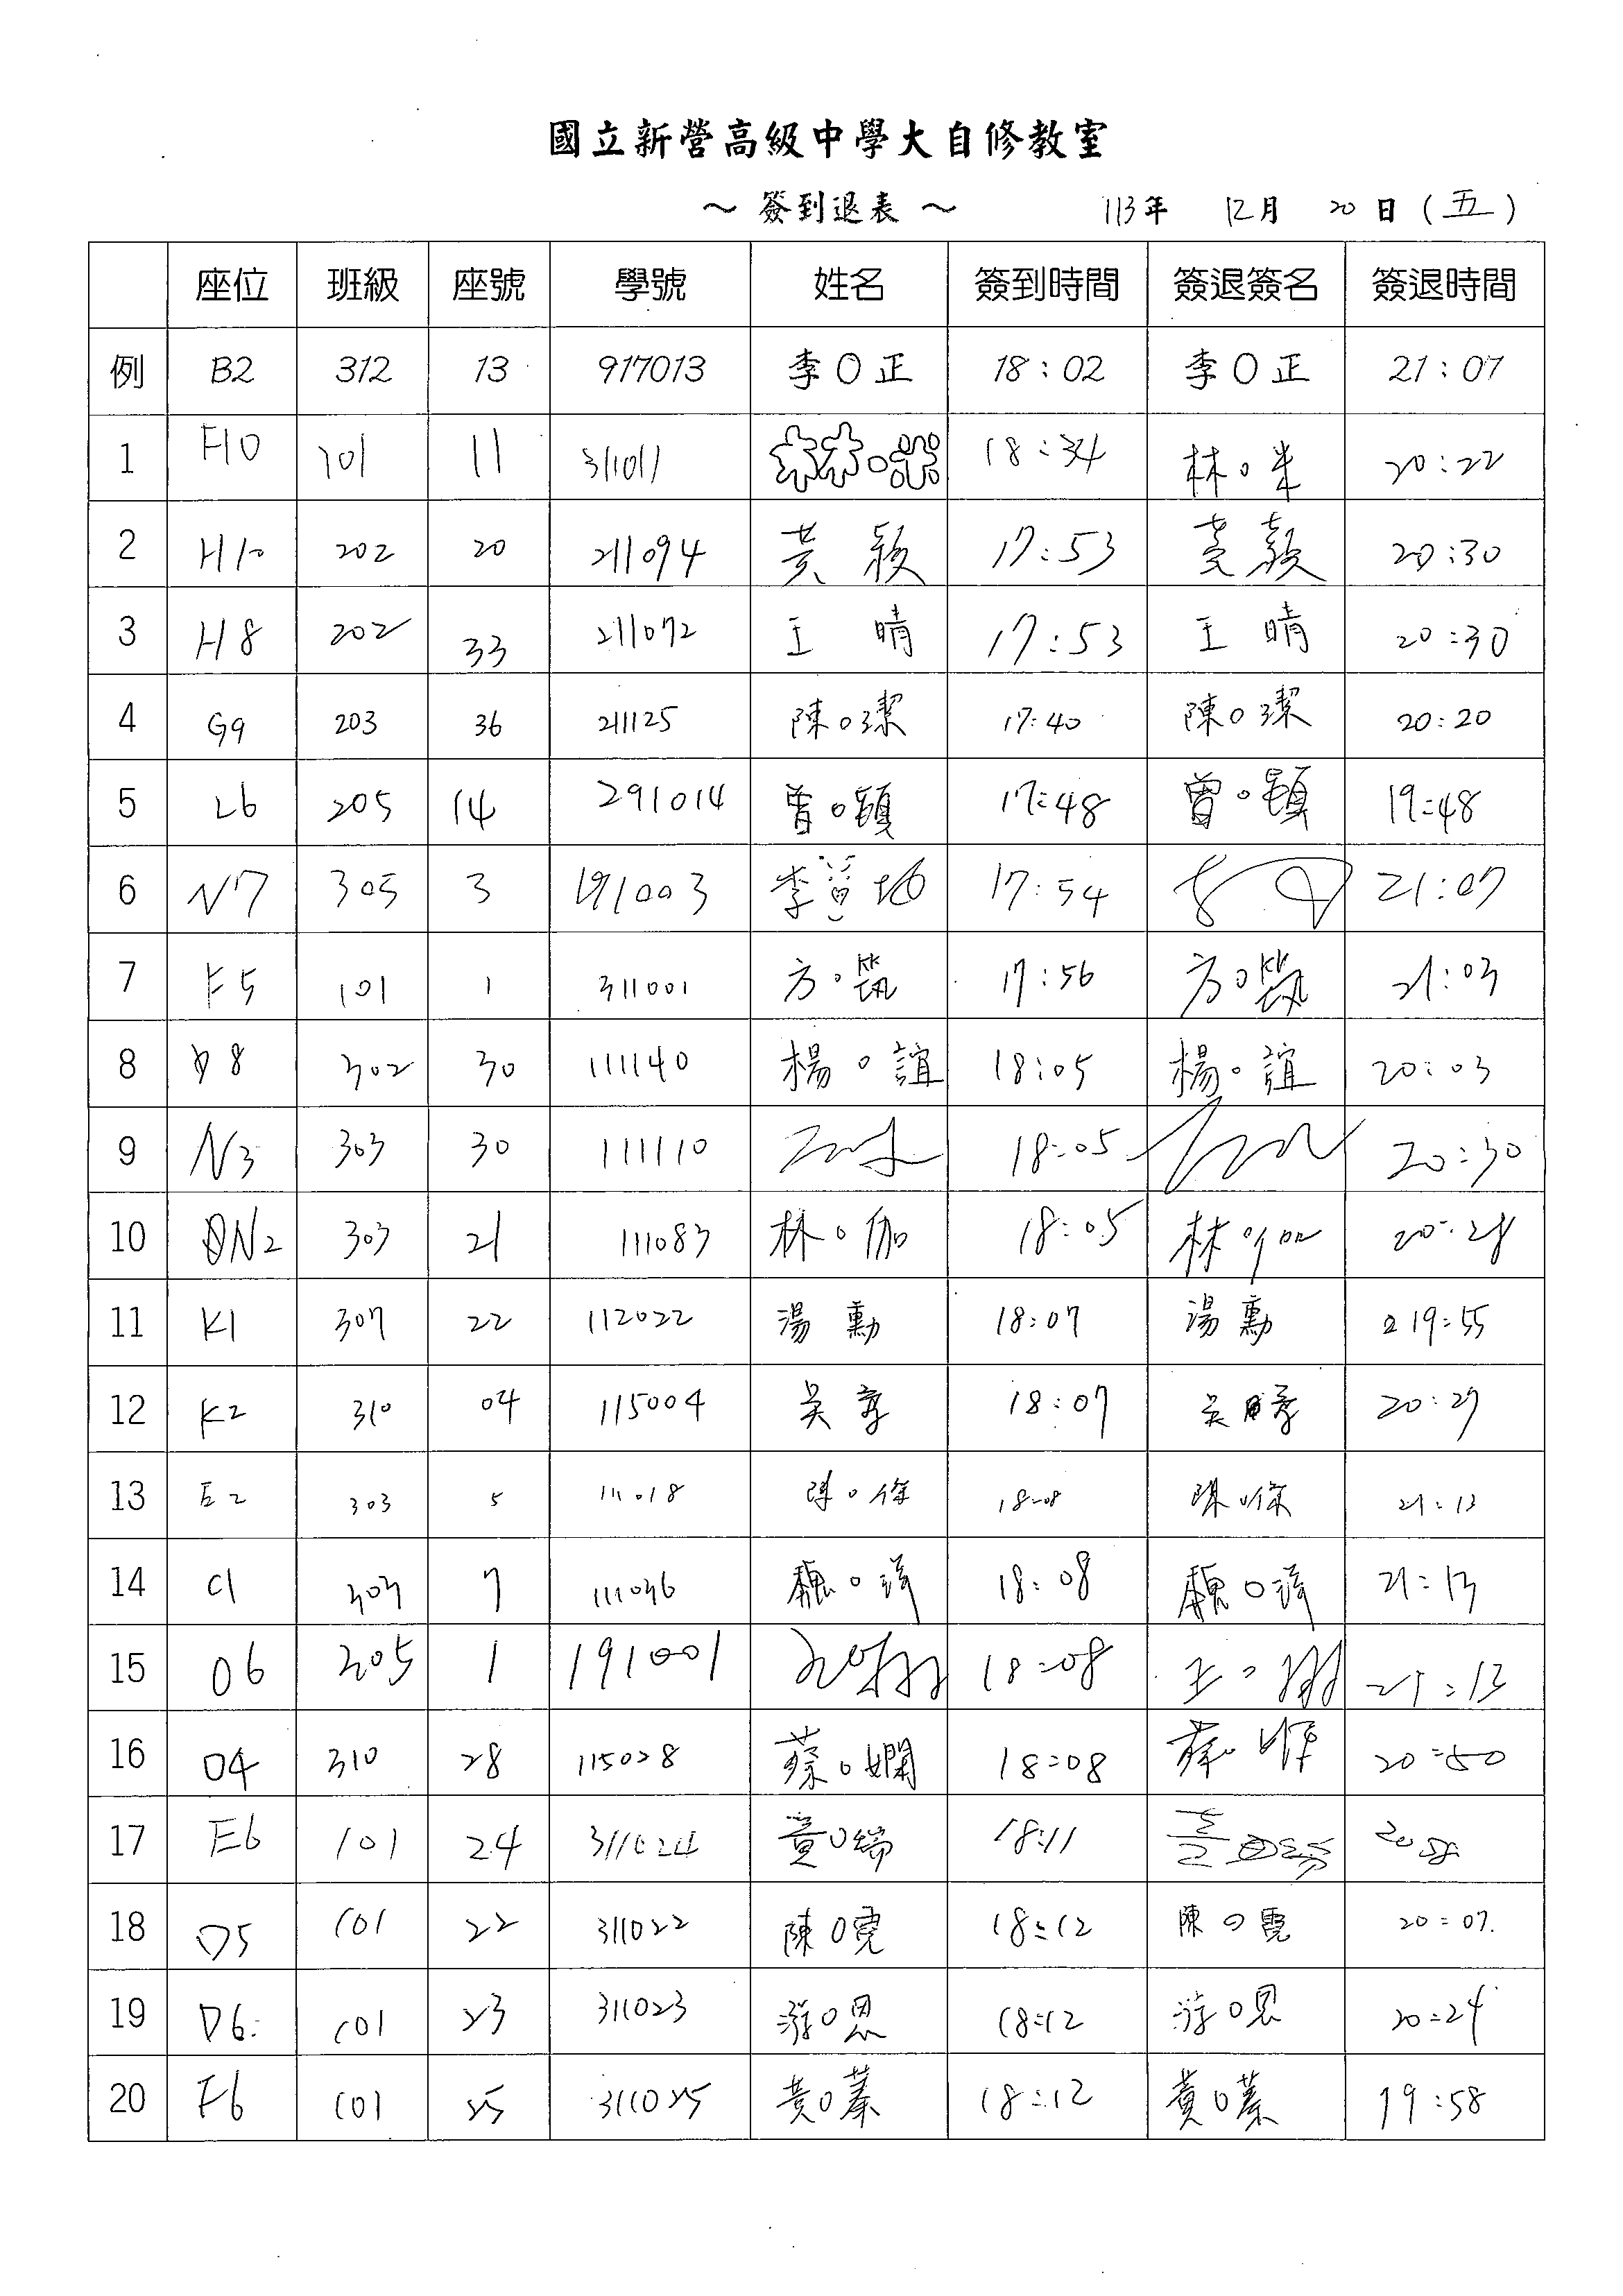 國立新營高級中學大自修教室
～ 簽到退表 ～ 113年 12月 20日(五)
座位 班級 座號 學號 姓名 簽到時間 簽退簽名 簽退時間
例 B2 312 13 917013 李〇正 18:02 李〇正 21:07
1 F10 101 11 311011 林〇米 18:34 林〇米 20:22
2 H10 202 20 211094 黃 穎 17:53 黃 穎 20:30
3 H8 202 33 211072 王 晴 17:53 王 晴 20:30
4 G9 203 36 211125 陳〇潔 17:40 陳〇潔 20:20
5 L6 205 14 291014 曾〇穎 17:48 曾〇穎 19:48
6 N7 305 3 191003 李 17:54 21:07
7 F5 101 1 311001 方〇 17:56 方〇 21:03
8 D8 302 30 111140 楊〇誼 18:05 楊〇誼 20:03
9 N3 303 30 111110 18:05 20:30
10 N2 303 21 111083 林〇伽 18:05 林〇伽 20:28
11 K1 307 22 112022 湯 勳 18:07 湯 勳 19:55
12 K2 310 04 115004 吳 18:07 吳 20:27
13 E2 303 5 111018 陳〇 18:08 陳〇 21:13
14 C1 303 7 111036 魏〇 18:08 魏〇 21:13
15 O6 305 1 191001 18:08 王〇 21:13
16 O4 310 28 115028 蔡〇嫻 18:08 蔡〇 20:50
17 E6 101 24 311024 黃〇瑞 18:11 20:58
18 D5 101 22 311022 陳〇霓 18:12 陳〇霓 20:07
19 D6 101 23 311023 游〇恩 18:12 游〇恩 20:24
20 F6 101 25 311025 黃〇蓁 18:12 黃〇蓁 19:58